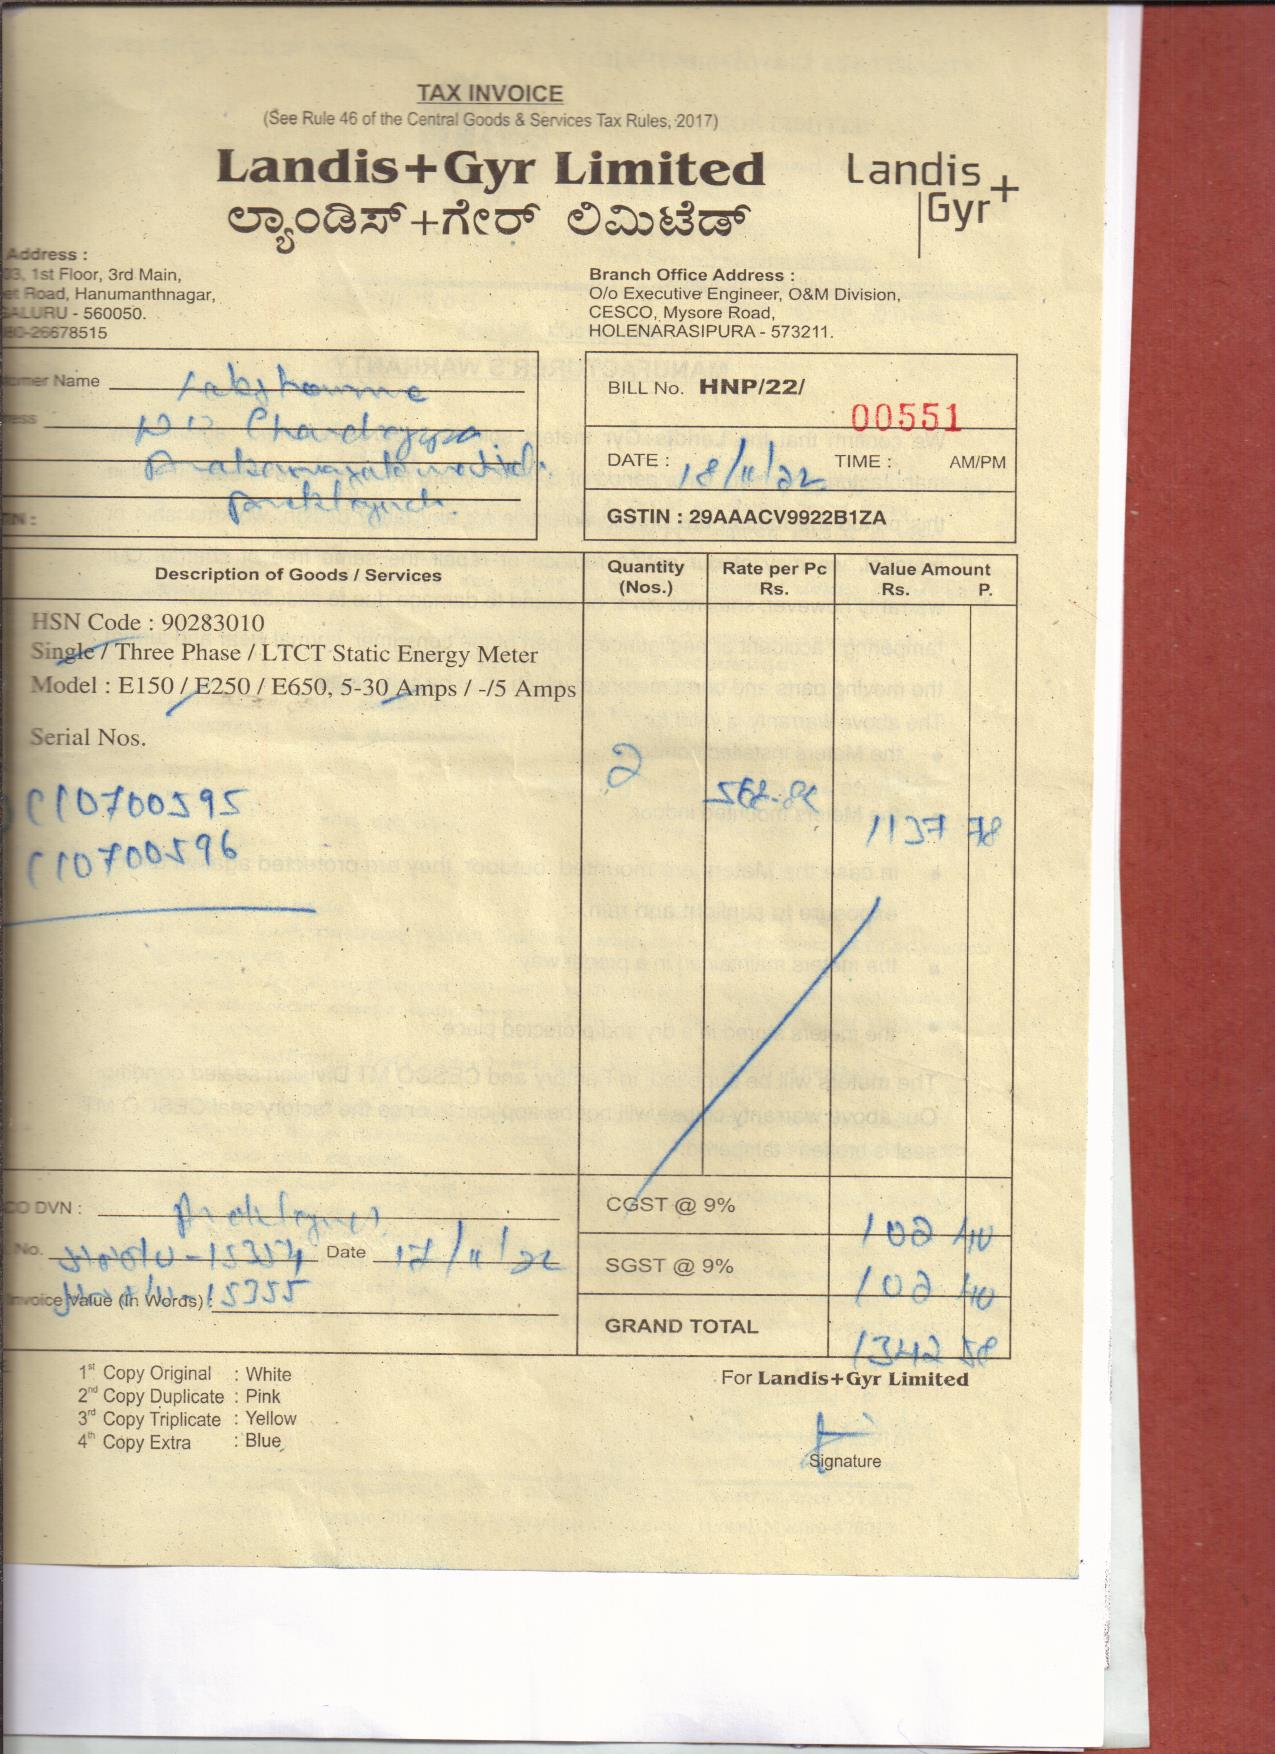 TAX INVOICE
(See Rule 46 of the Central Goods & Services Tax Rules, 2017)
Landis+Gyr Limited
Landis+
Gyr
ಲ್ಯಾಂಡಿಸ್+ಗೇರ್ ಲಿಮಿಟೆಡ್
Address :
1st Floor, 3rd Main,
Road, Hanumanthnagar,
- 560050.
26678515
Branch Office Address :
O/o Executive Engineer, O&M Division,
CESCO, Mysore Road,
HOLENARASIPURA - 573211.
Name
BILL No. HNP/22/
00551
DATE : 18/11/22 TIME : AM/PM
GSTIN : 29AAACV9922B1ZA
Description of Goods / Services
Quantity (Nos.)
Rate per Pc Rs.
Value Amount Rs. P.
HSN Code : 90283010
Single / Three Phase / LTCT Static Energy Meter
Model : E150 / E250 / E650, 5-30 Amps / -/5 Amps
Serial Nos.
2
1137 78
C10700595
C10700596
DVN :
CGST @ 9% 102 40
No. Date 17/11/22
SGST @ 9% 102 40
Value (In Words) :
GRAND TOTAL 1342 58
1st Copy Original : White
2nd Copy Duplicate : Pink
3rd Copy Triplicate : Yellow
4th Copy Extra : Blue
For Landis+Gyr Limited
Signature